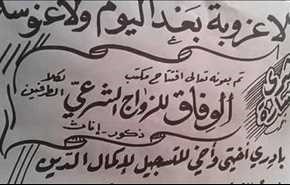 لا عزوبة بعد اليوم ولا عنوسة
تم بعونه تعالى افتتاح مكتب
الوفاق للزواج الشرعي
لكلا الطرفين
ذكور - إناث
بادري أختي وأخي للتسجيل لإكمال الدين